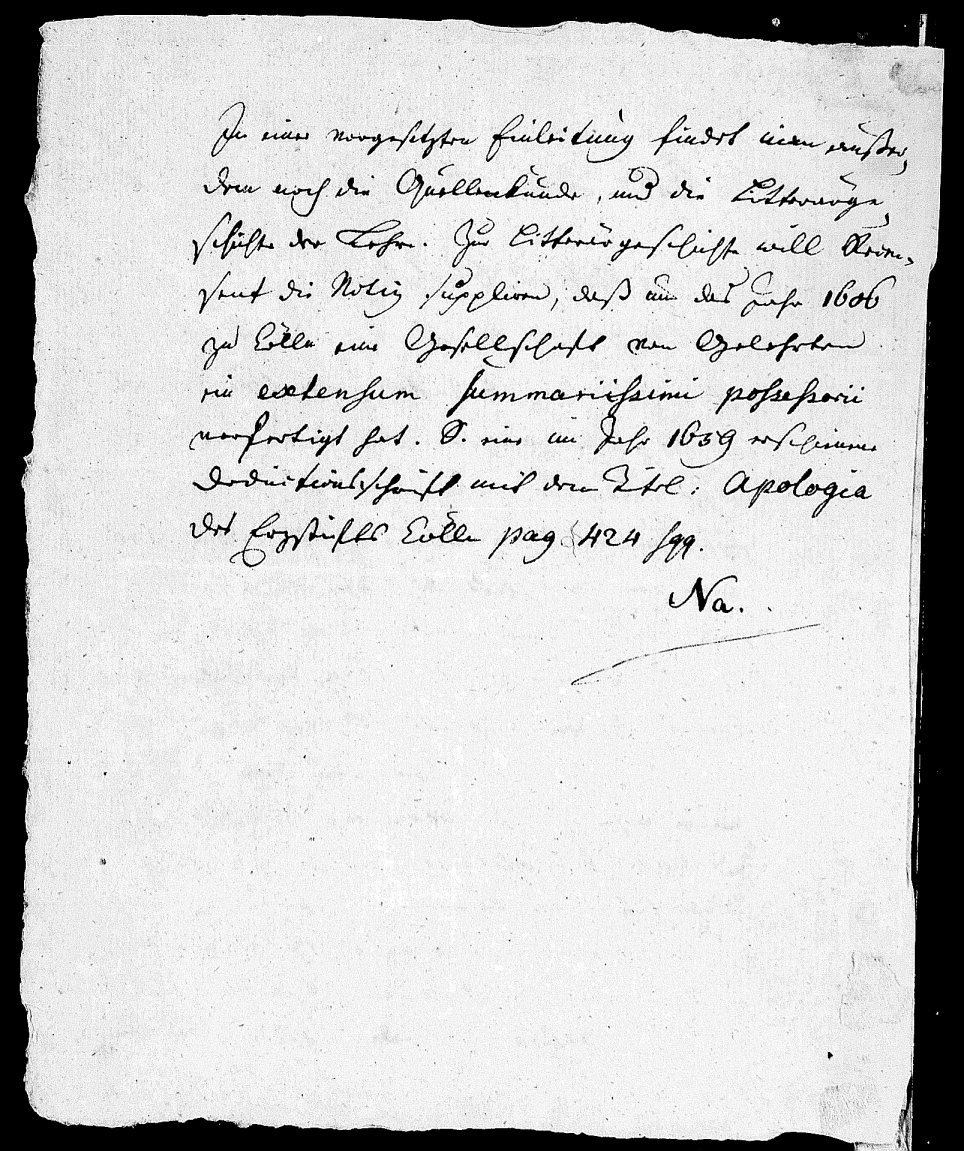 In einer vorgesetzten Einleitung findet man außer,
dem noch die Quellenkunde, und die Litterärge,
schichte der Lehre. Zur Litterärgeschichte will Recen-
sent die Notiz suppliren, daß um das Jahr 1606
zu Cölln eine Gesellschaft von Gelehrten
ein extensum summariissimi possessorii
verfertigt hat. S. eine im Jahr 1659 erschienene
Deductionsschrift mit dem Titel: Apologia
des Erzstifts Cölln pag 424 sqq.
Na.